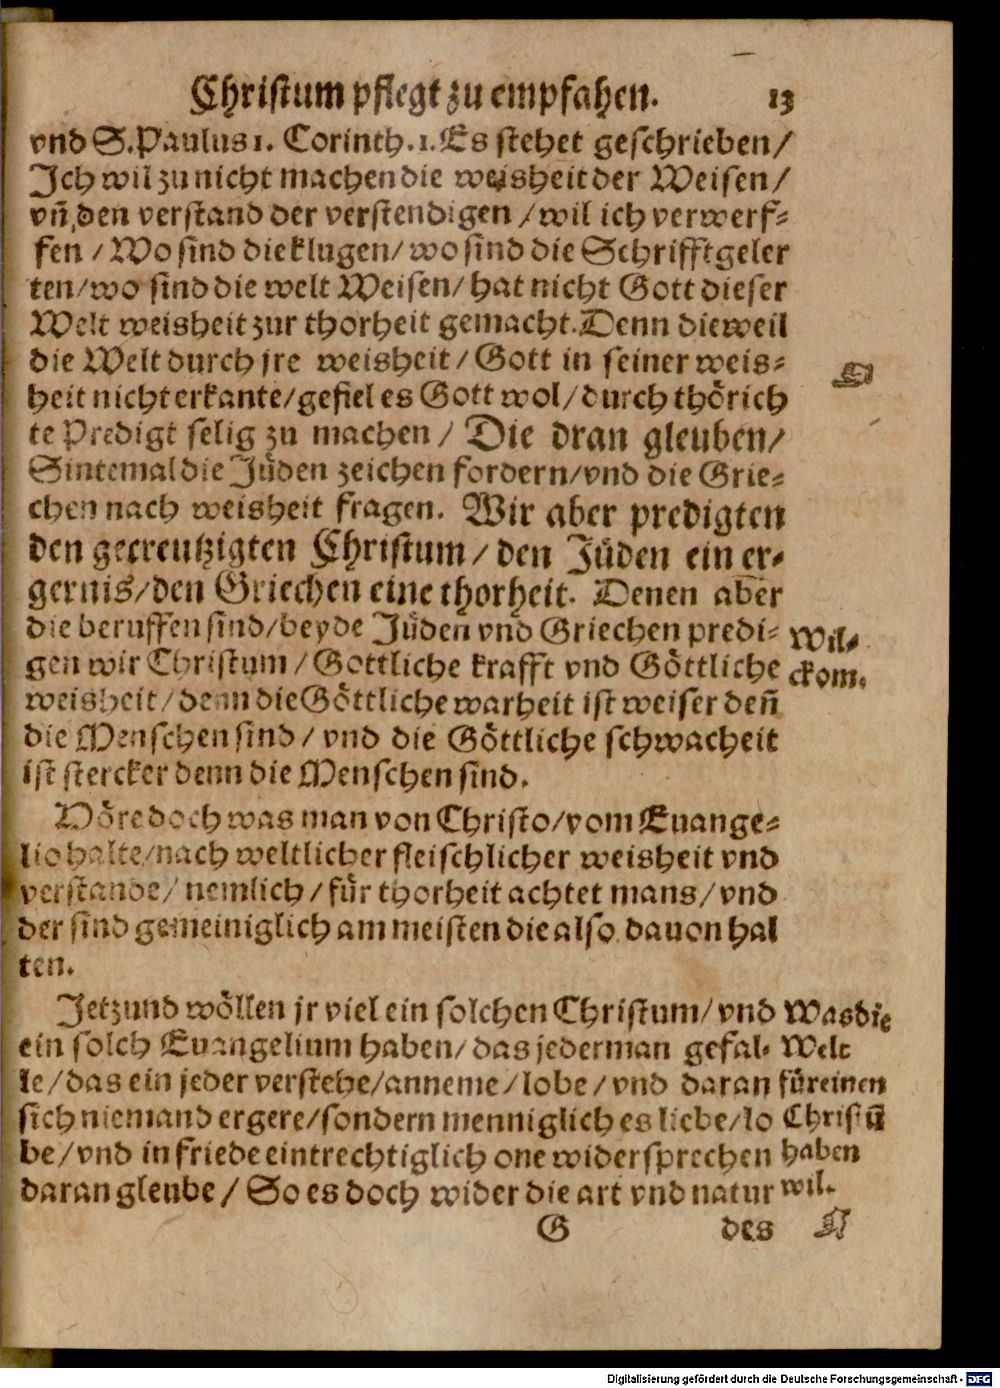 Christum pflegt zu empfahen. 13
vnd S. Paulus 1. Corinth. 1. Es stehet geschrieben/
Ich wil zu nicht machen die weisheit der Weisen/
vñ den verstand der verstendigen / wil ich verwerf-
fen / Wo sind die klugen/ wo sind die Schrifftgeler
ten/ wo sind die welt Weisen/ hat nicht Gott dieser
Welt weisheit zur thorheit gemacht. Denn dieweil
die Welt durch jre weisheit / Gott in seiner weis-
heit nicht erkante/ gefiel es Gott wol/ durch thörich
te Predigt selig zu machen / Die dran gleuben/
Sintemal die Jüden zeichen fordern/ vnd die Grie-
chen nach weisheit fragen. Wir aber predigten
den gecreutzigten Christum / den Jüden ein er-
gernis/ den Griechen eine thorheit. Denen aber
die beruffen sind/ beyde Jüden vnd Griechen predi-
gen wir Christum / Gottliche krafft vnd Göttliche
weisheit / denn die Göttliche warheit ist weiser deñ
die Menschen sind / vnd die Göttliche schwacheit
ist stercker denn die Menschen sind.
Wil-
ckom.
Höre doch was man von Christo/ vom Euange-
lio halte/ nach weltlicher fleischlicher weisheit vnd
verstande/ nemlich / für thorheit achtet mans/ vnd
der sind gemeiniglich am meisten die also dauon hal
ten.
Jetzund wöllen jr viel ein solchen Christum/ vnd
ein solch Euangelium haben/ das jederman gefal-
le / das ein jeder verstehe/ anneme / lobe / vnd daran
sich niemand ergere/ sondern menniglich es liebe/ lo
be / vnd in friede eintrechtiglich one widersprechen
daran gleube / So es doch wider die art vnd natur
Was die
Welt
für einen
Christū
haben
wil.
G des
Digitalisierung gefördert durch die Deutsche Forschungsgemeinschaft - DFG